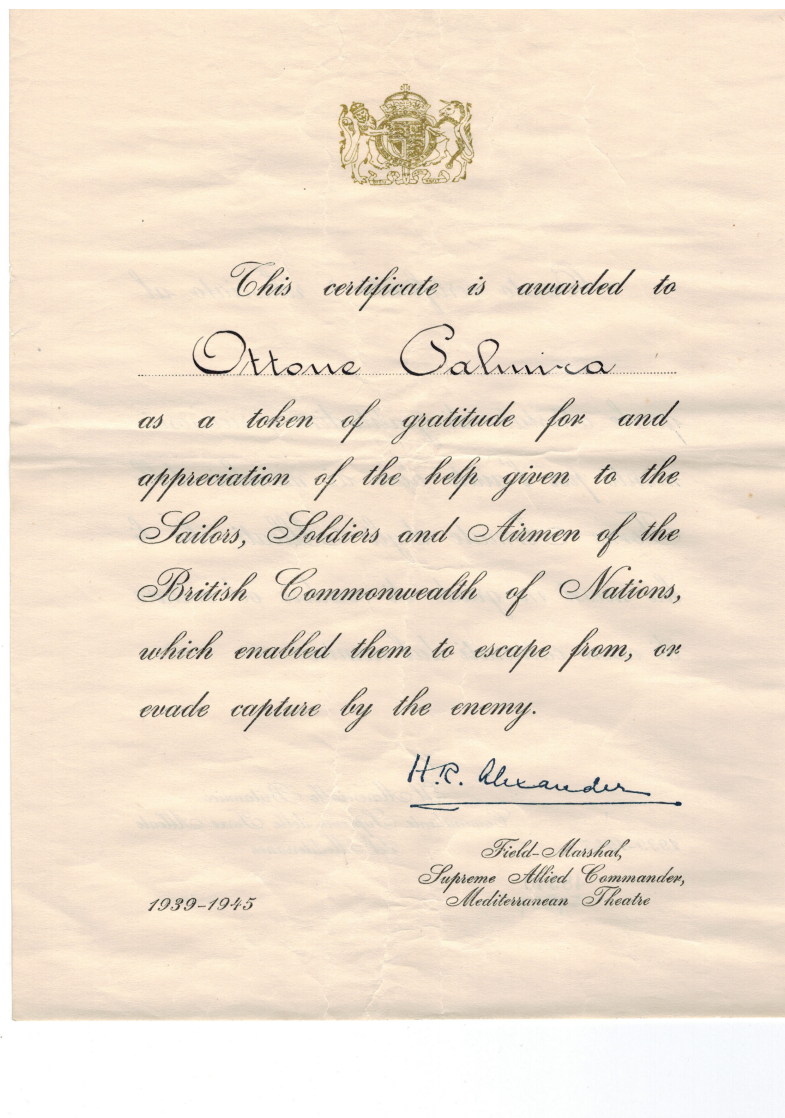 This certificate is awarded to
Ottone Palmira
as a token of gratitude for and
appreciation of the help given to the
Sailors, Soldiers and Airmen of the
British Commonwealth of Nations,
which enabled them to escape from, or
evade capture by the enemy.
H.R. Alexander
Field-Marshal,
Supreme Allied Commander,
Mediterranean Theatre
1939-1945